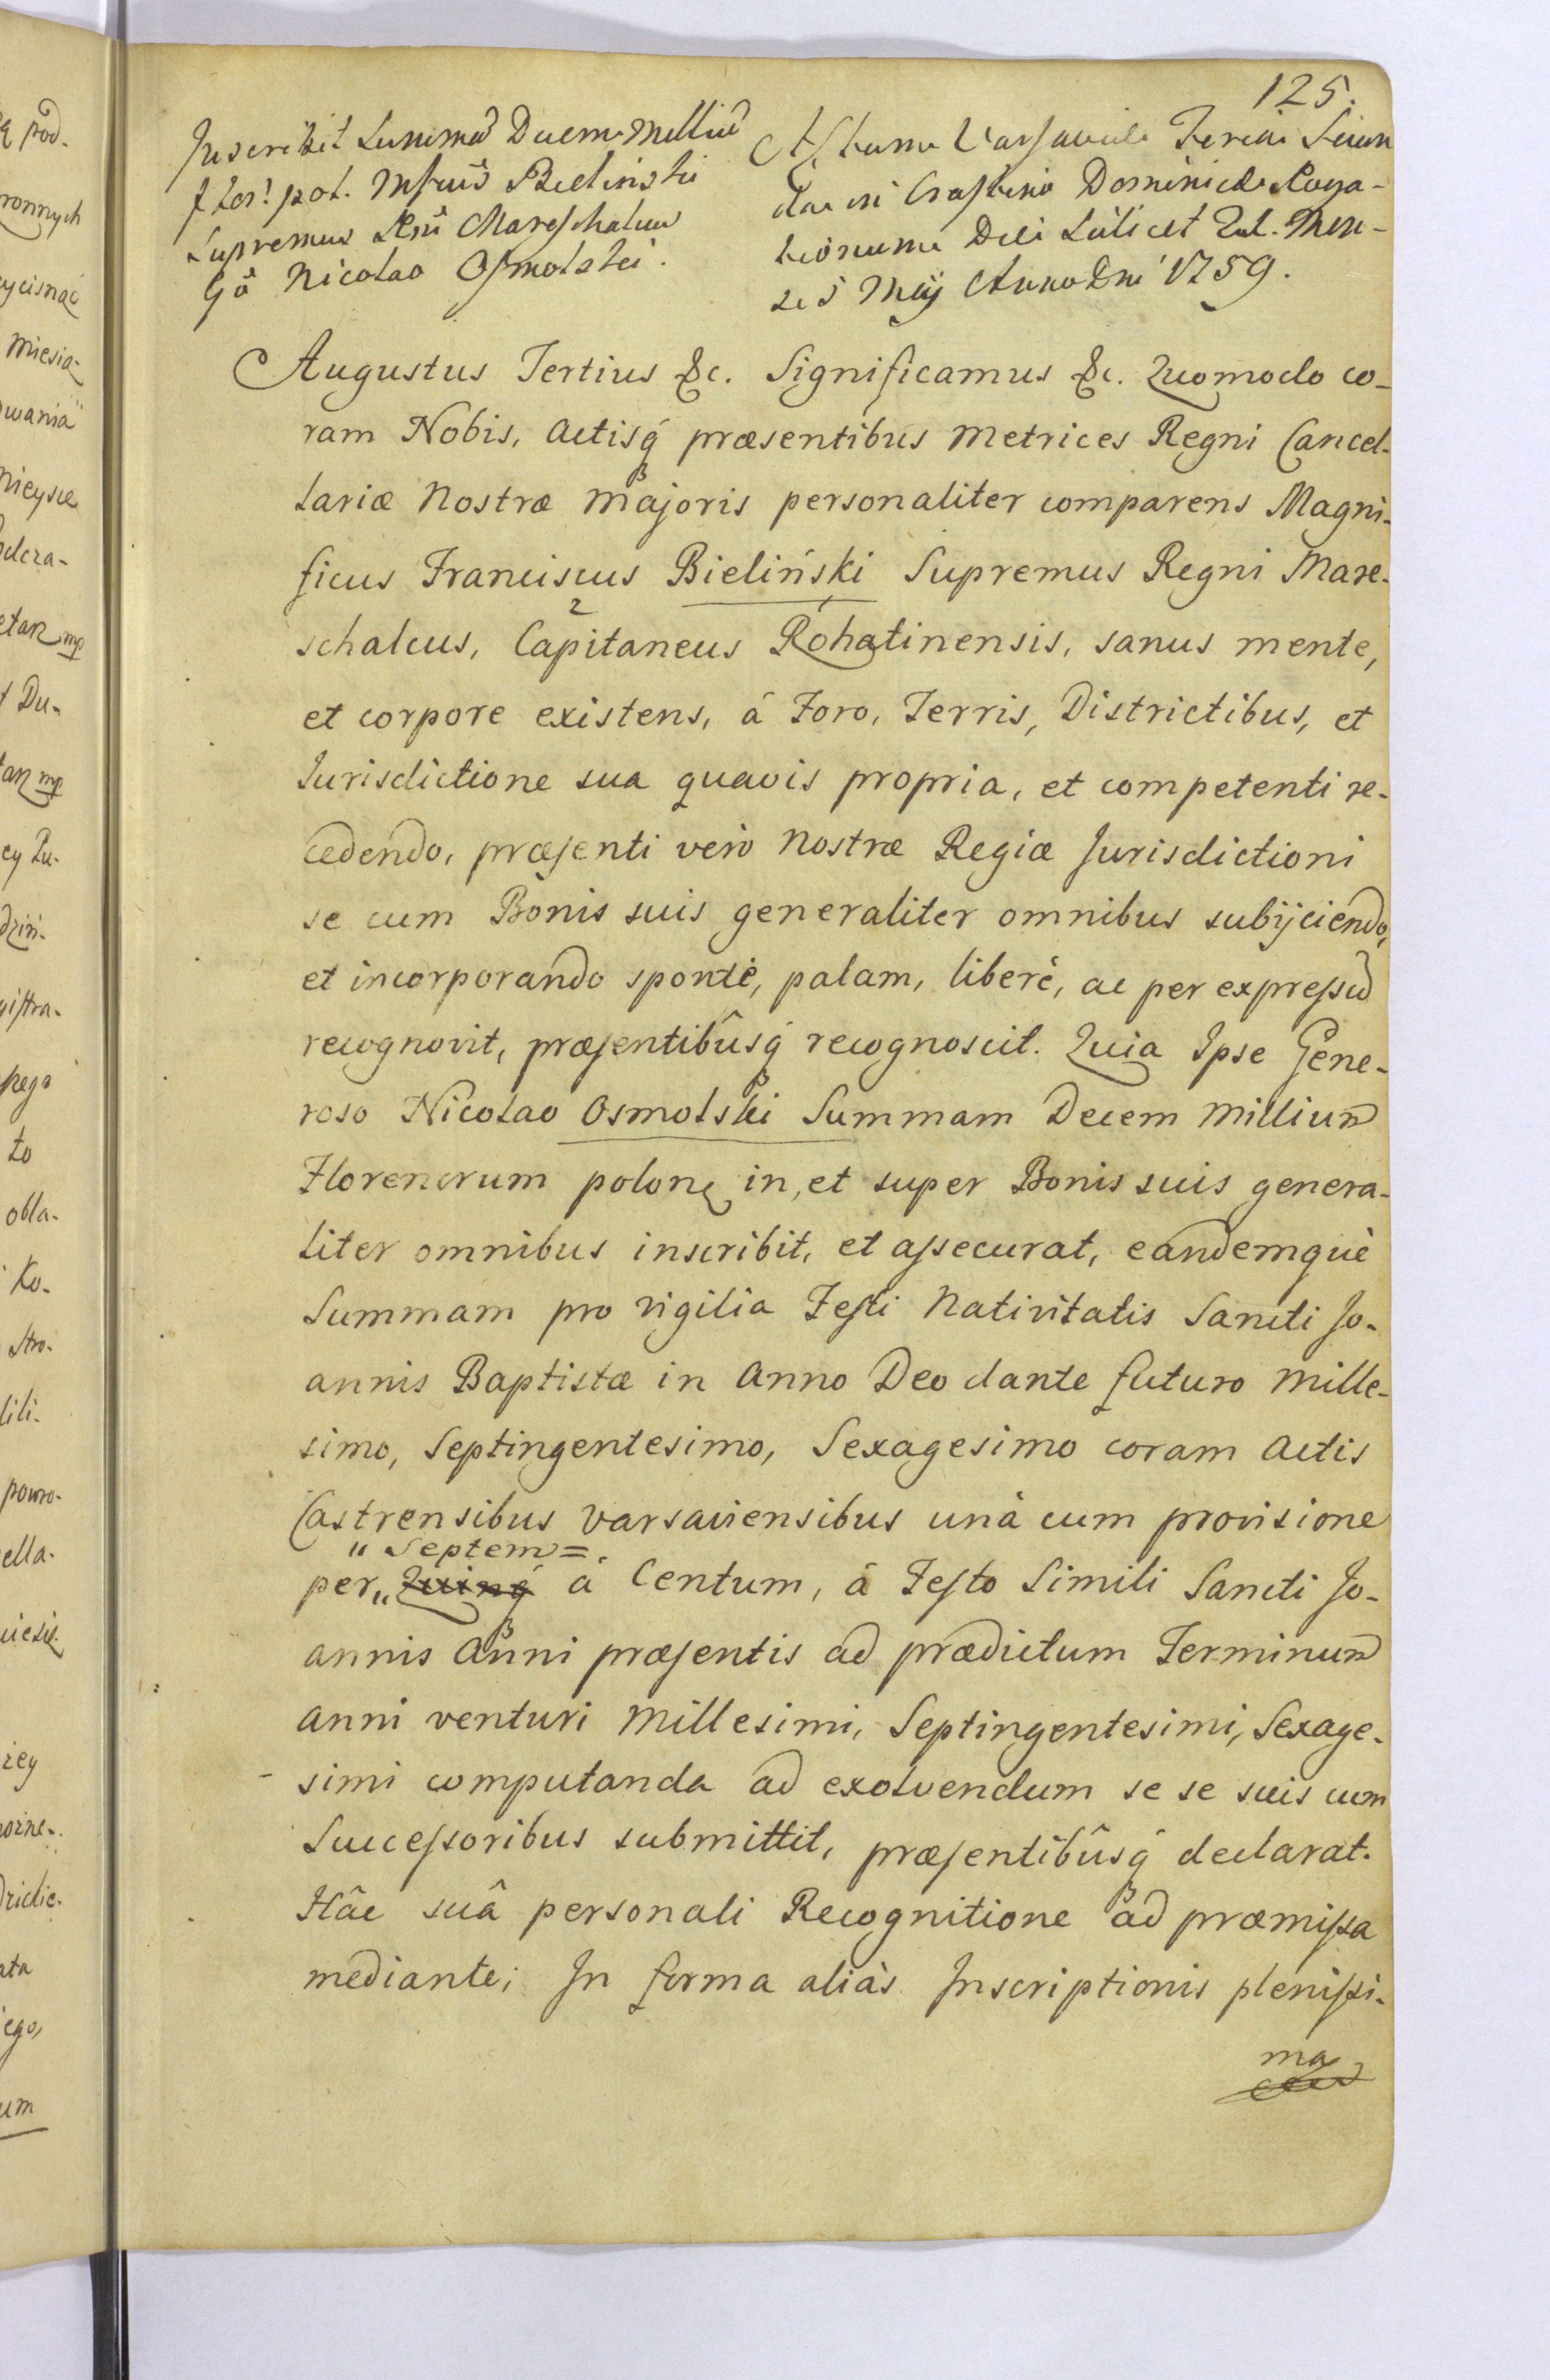 125.
Inscribit Summã Decem Milliũ
flor: pol. Mfcus Bielinski
Supremus Rgni Mareschalcus
Gõ Nicolao Osmolski.
Actum Varsaviæ Feria Secun
da in Crastino Dominicæ Roga-
tionum Diei Scilicet 21. Men-
sis Maij Anno Dni 1759.
Augustus Tertius &c. Significamus &c. Quomodo co-
ram Nobis, Actisq́ præsentibus Metrices Regni Cancel-
lariæ Nostræ Majoris personaliter comparens Magni-
ficus Franciscus Bieliński Supremus Regni Mare-
schalcus, Capitaneus Rohatinensis, sanus mente,
et corpore existens, á Foro, Terris, Districtibus, et
Iurisdictione sua quavis propria, et competenti re-
cedendo, præsenti verò Nostræ Regiæ Jurisdictioni
se cum Bonis suis generaliter omnibus subijciendo,
et incorporando spontè, palam, liberè, ac per expressũ
recognovit, præsentibûsq́ recognoscit. Quia Ipse Gene-
roso Nicolao Osmolski Summam Decem Milliũ
Florenorum polonę in, et super Bonis suis genera-
liter omnibus inscribit, et assecurat, eandemquè
Summam pro vigilia Festi Nativitatis Sancti Jo-
annis Baptistæ in Anno Deo dante futuro Mille-
simo, Septingentesimo, Sexagesimo coram Actis
Castrensibus Varsaviensibus unà cum provisione
" Septem =.
per,, Quinq́ á Centum, á Festo Simili Sancti Jo-
annis Anni præsentis ad prædictum Terminum
Anni venturi Millesimi, Septingentesimi, Sexage-
simi computanda ad exolvendum se se suis cum
Successoribus submittit, præsentibûsq́ declarat.
Hâc suâ personali Recognitione ad præmissa
mediante; In forma aliàs Inscriptionis plenissi-
ma